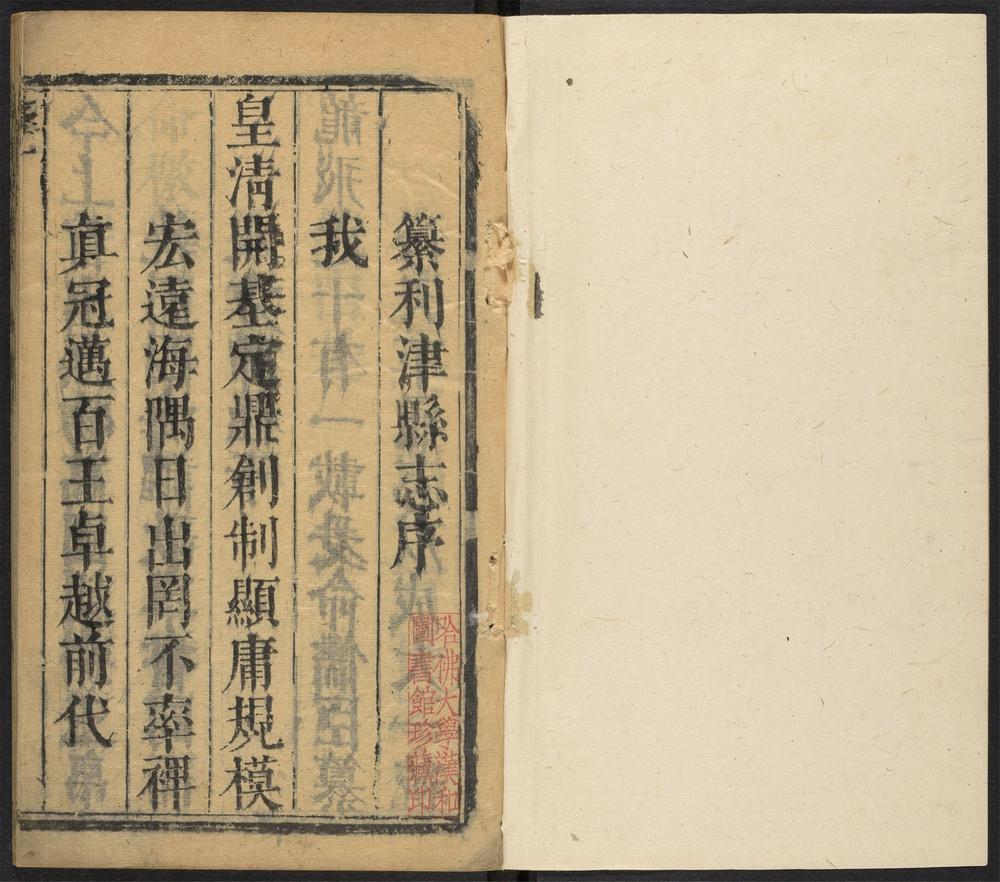 纂利津縣志序
我
皇清開基定鼎創制顯庸規模
宏遠海隅日出罔不率裨
真冠邁百王卓越前代
哈佛大學漢和
圖書館珍藏印